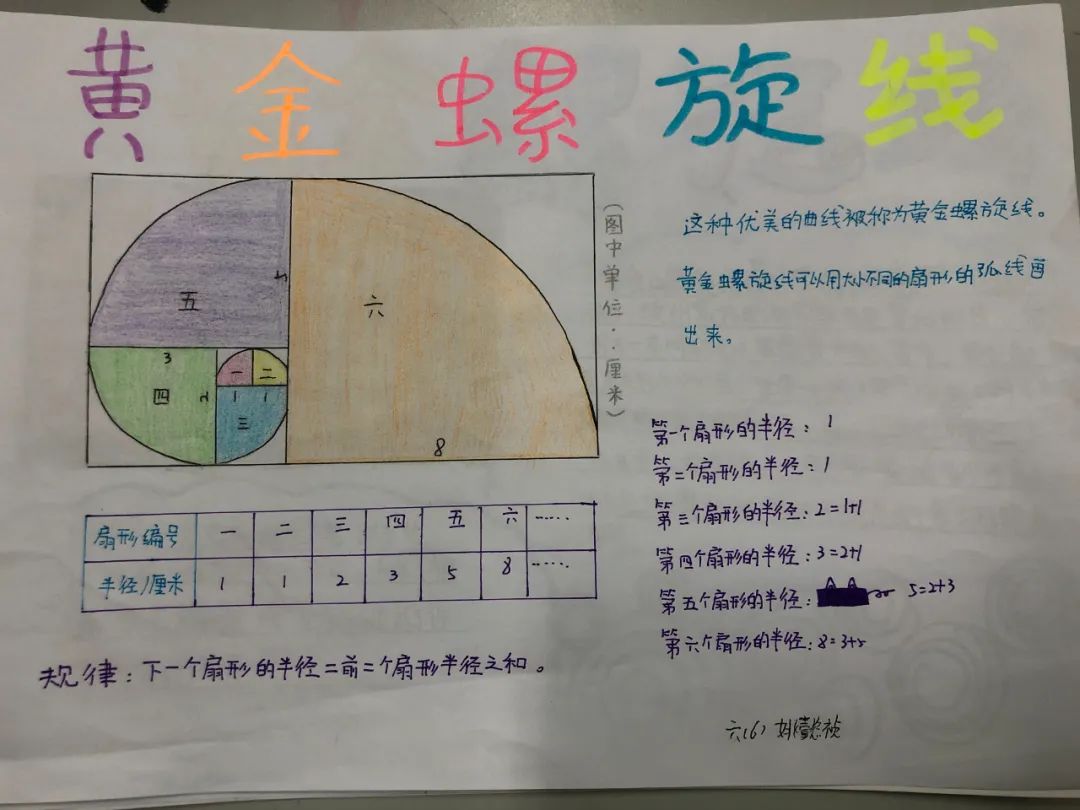 黄金螺旋线
五
六
5
3
四
2
一
二
1
1
三
8
(图中单位:厘米)
这种优美的曲线被称为黄金螺旋线。
黄金螺旋线可以用大小不同的扇形的弧线画
出来。
扇形编号 一 二 三 四 五 六 ……
半径/厘米 1 1 2 3 5 8 ……
规律:下一个扇形的半径=前二个扇形半径之和。
第一个扇形的半径:1
第二个扇形的半径:1
第三个扇形的半径:2=1+1
第四个扇形的半径:3=2+1
第五个扇形的半径: 5=2+3
第六个扇形的半径:8=3+5
六(6)